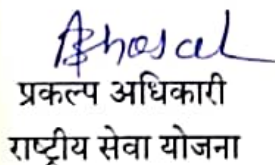 Bhosale
प्रकल्प अधिकारी
राष्ट्रीय सेवा योजना